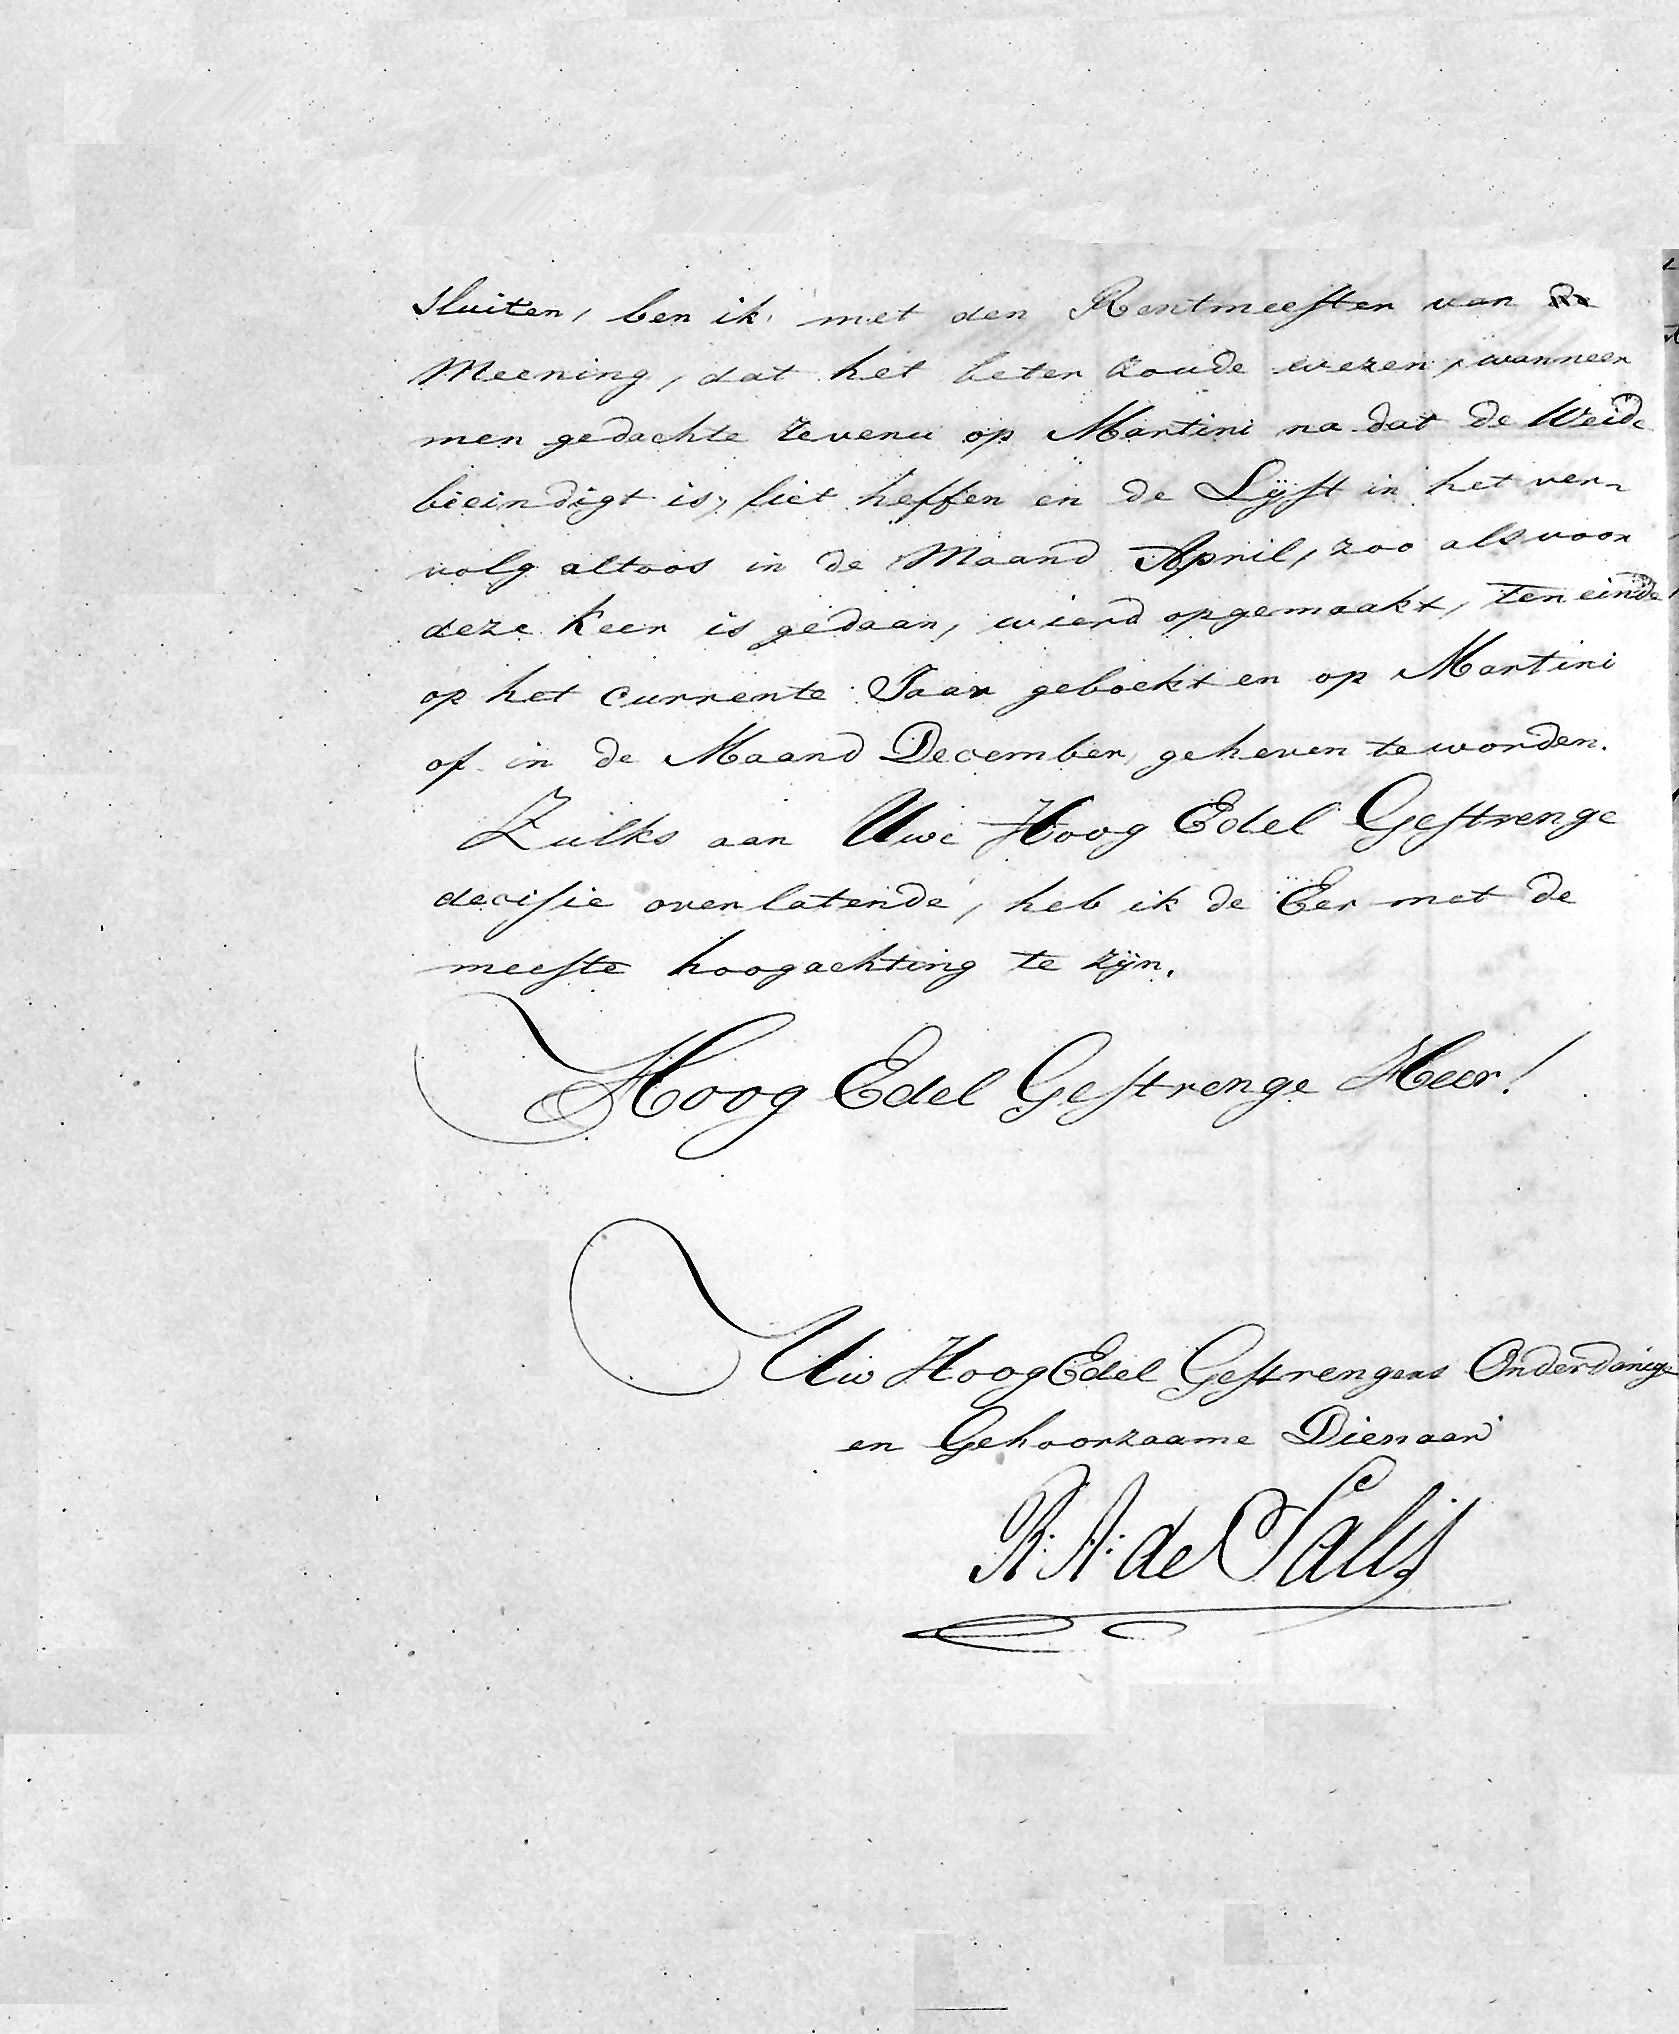 sluiten, ben ik met den Rentmeester van
Meening, dat het beter zoude wezen, wanneer
men gedachte revenu op Martini na dat de Weide
bieindigt is, liet heffen en de Lijst in het ver-
volg altoos in de Maand April, zoo als voor
deze keer is gedaan, wierd opgemaakt, ten einde
op het currente Jaar geboekt en op Martini
of in de Maand December geheven te worden.
Zulks aan Uwe Hoog Edel Gestrenge
decisie overlatende, heb ik de Eer met de
meeste hoogachting te zijn.
Hoog Edel Gestrenge Heer!
Uw Hoog Edel Gestrengens Onderdanige
en Gehoorzaame Dienaar
R: A: de Salis